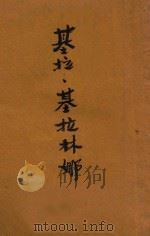 基拉·基拉林娜
mtoou.info